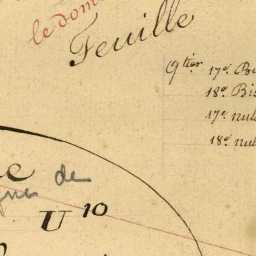 le dom
Feuille
9tier 17e. Bu
18e. Bis
17e nul
18e nul
de
U 10